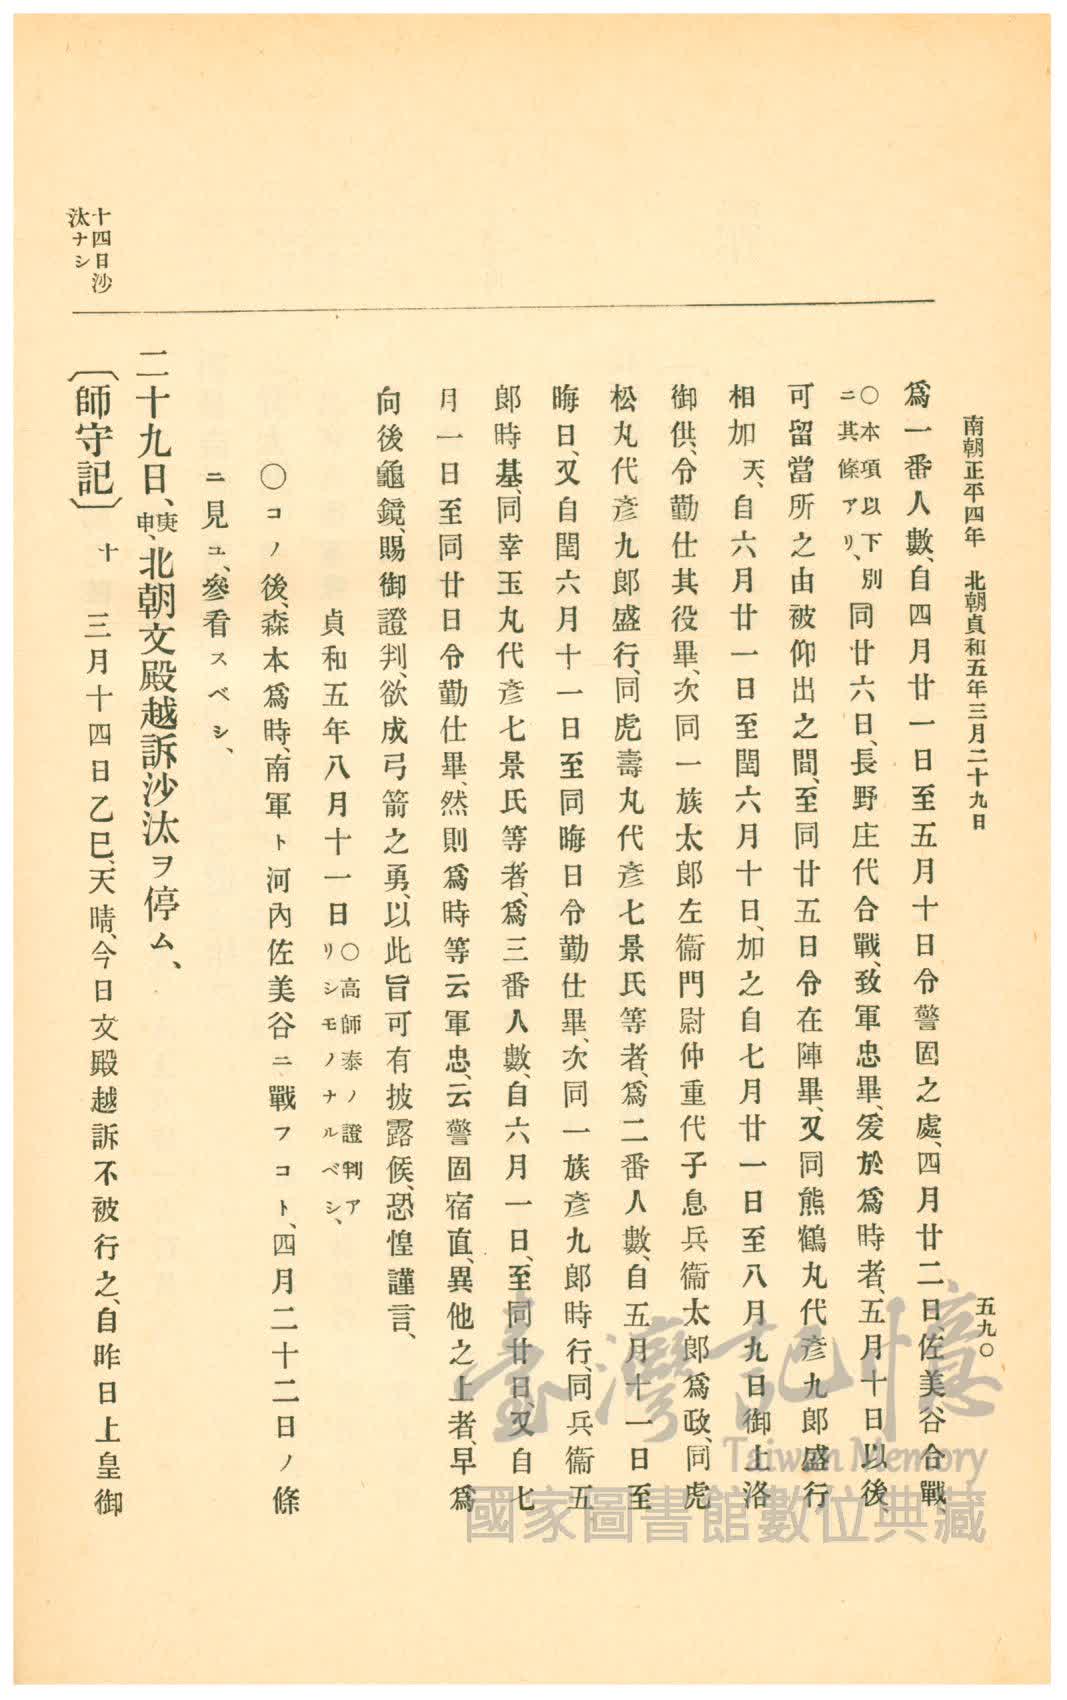 南朝正平四年　北朝貞和五年三月二十九日
五九〇
爲一番人數、自四月廿一日至五月十日令警固之處、四月廿二日、佐美谷合戰
〇本項以下別
ニ其條アリ、
同廿六日、長野庄代合戰、致軍忠畢、爰於爲時者、五月十日以後、
可留當所之由被仰出之間、至同廿五日令在陣畢、又同熊鶴丸代彥九郎盛行
相加天、自六月廿一日至閏六月十日、加之自七月廿一日至八月九日御上洛
御供、令勤仕其役畢、次同一族太郎左衞門尉仲重代子息兵衞太郎爲政、同虎
松丸代彥九郎盛行、同虎壽丸代彥七景氏等者、爲二番人數、自五月十一日至
晦日、又自閏六月十一日至同晦日令勤仕畢、次同一族彥九郎時行、同兵衞五
郎時基、同幸玉丸代彥七景氏等者、爲三番人數、自六月一日、至同廿日、又自七
月一日至同廿日令勤仕畢、然則爲時等云軍忠、云警固宿直、異他之上者、早爲
向後龜鏡、賜御證判、欲成弓箭之勇、以此旨可有披露候、恐惶謹言、
貞和五年八月十一日
〇高師泰ノ證判ア
リシモノナルベシ、
〇コノ後、森本爲時、南軍ト河內佐美谷ニ戰フコト、四月二十二日ノ條
ニ見ユ、參看スベシ、
二十九日、庚申、北朝文殿越訴沙汰ヲ停ム、
〔師守記〕十　三月十四日乙巳、天晴、今日文殿越訴不被行之、自昨日上皇御
十四日沙
汰ナシ
臺灣記憶
Taiwan Memory
國家圖書館數位典藏